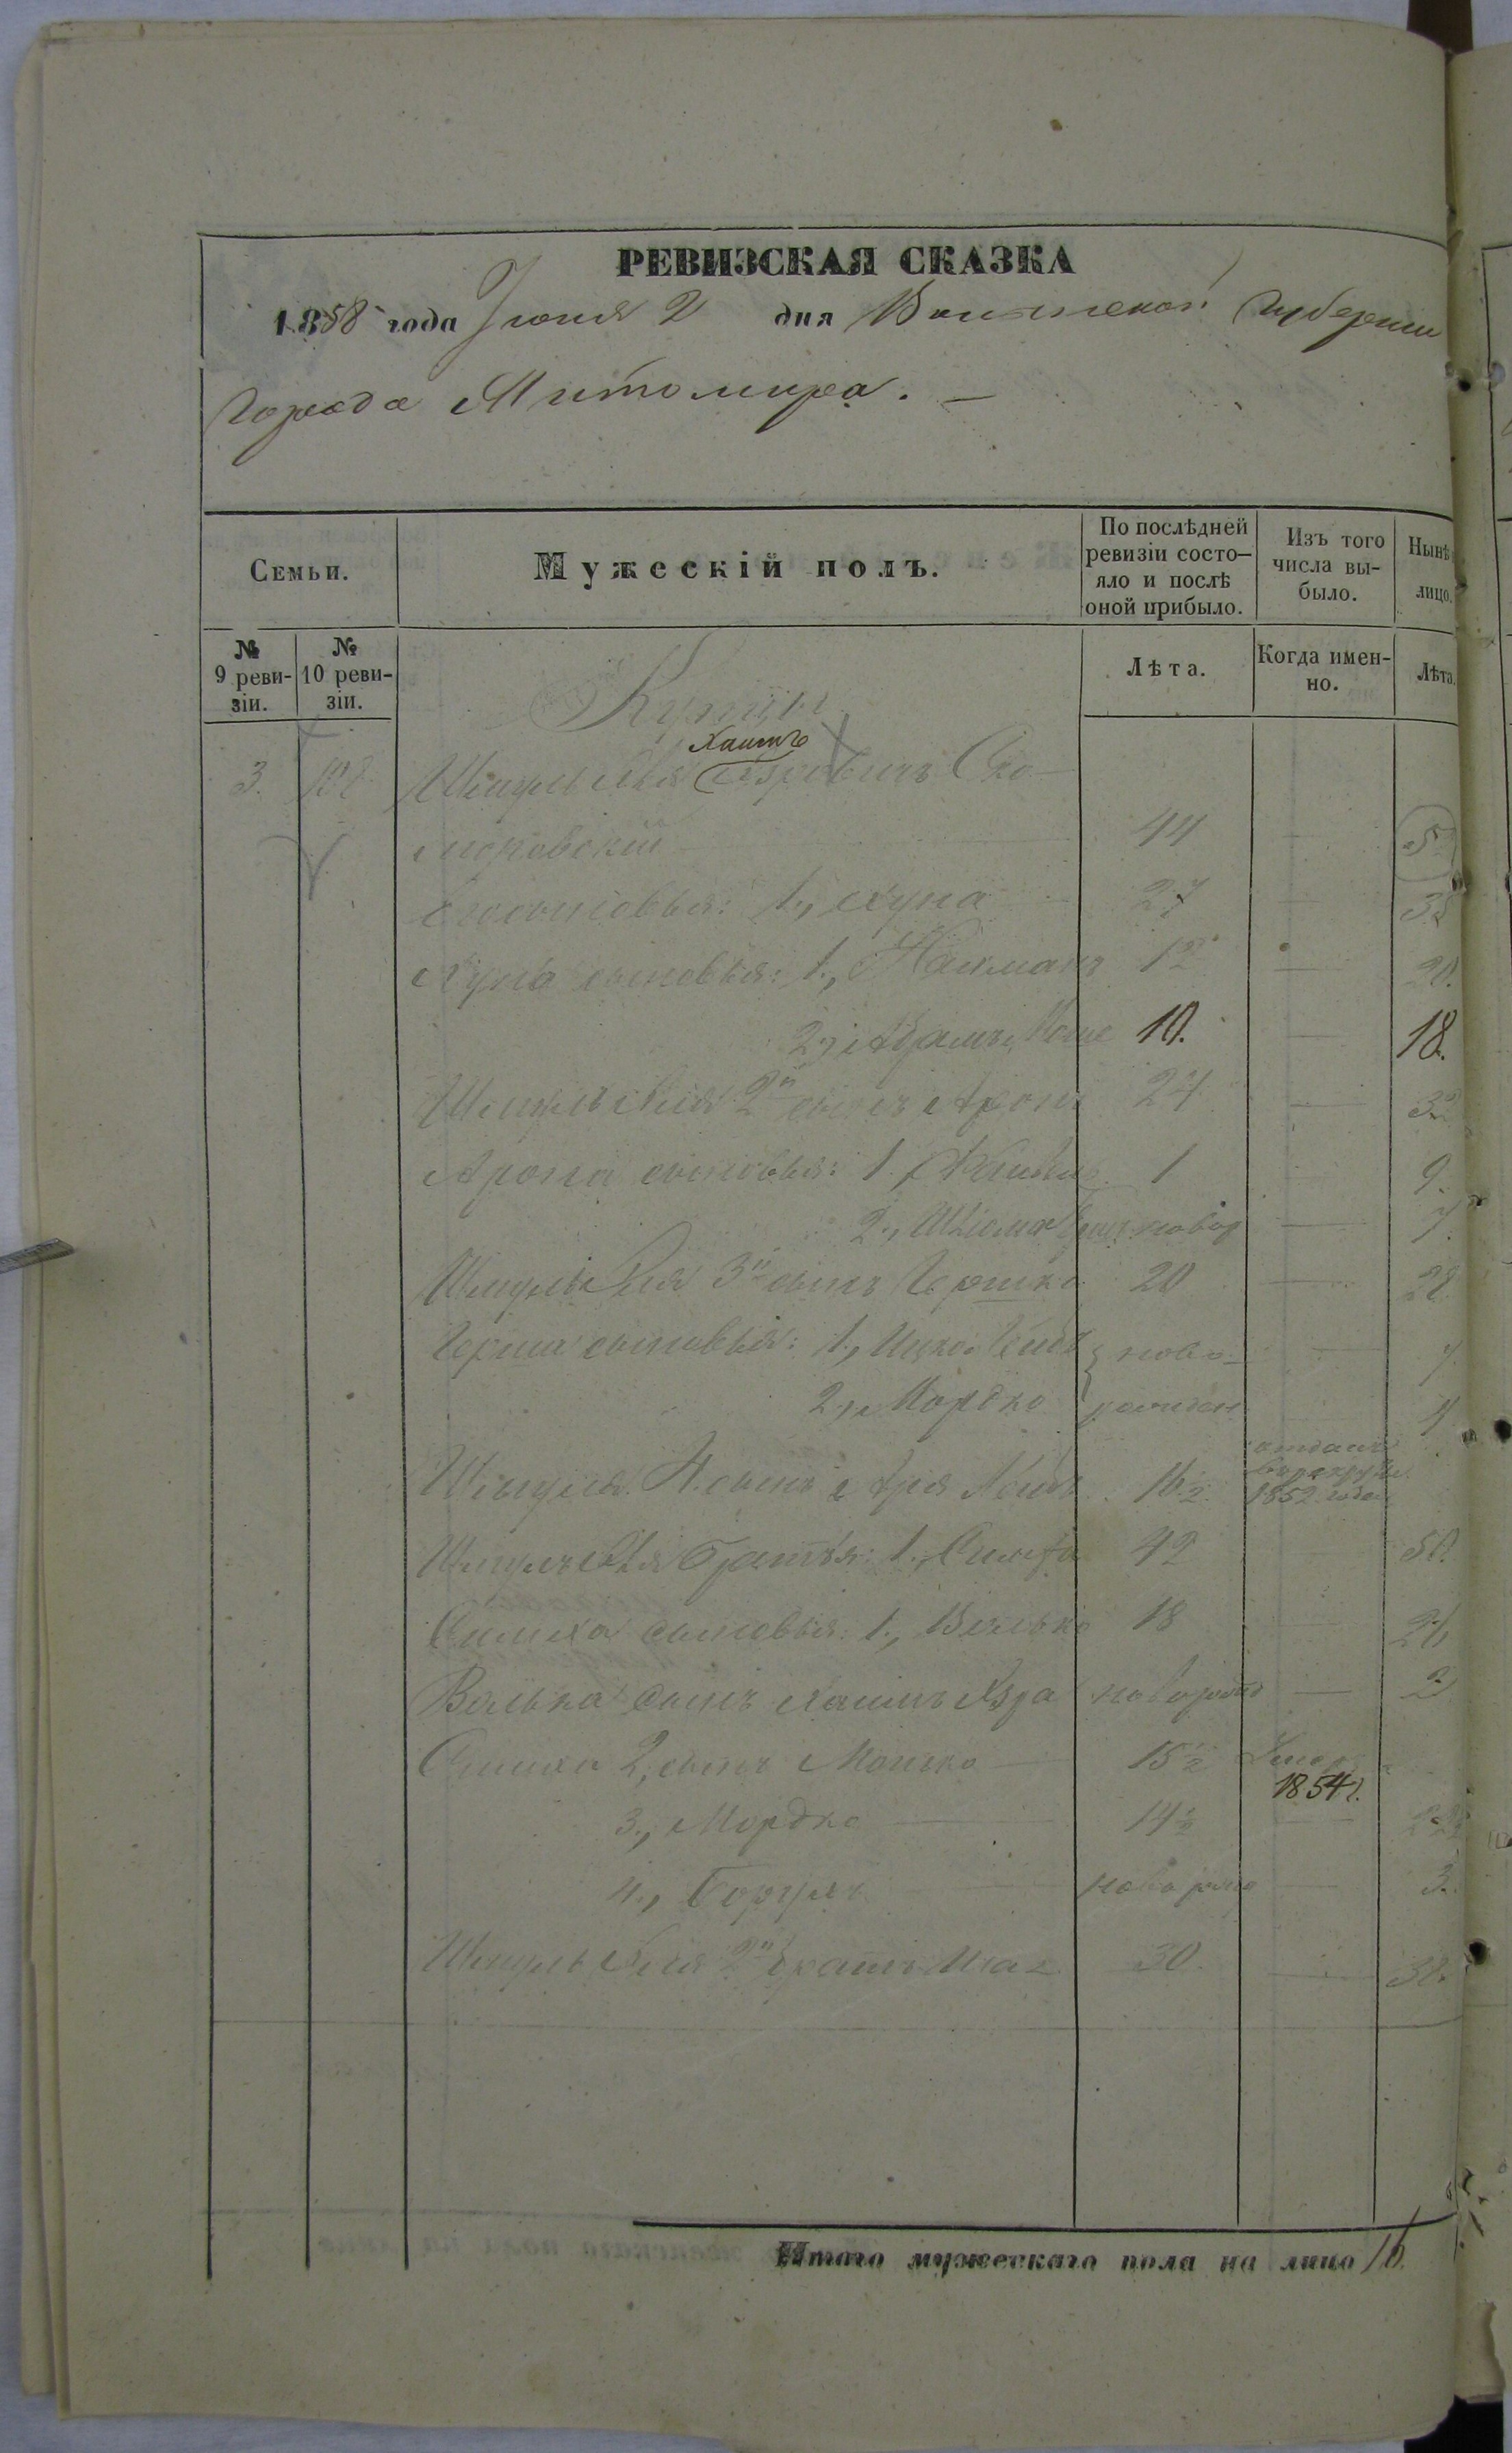 РЕВИЗСКАЯ СКАЗКА
1858 года Іюня 2 дня Волынской Губерніи
Города Житомира. —
Семьи.
Мужескій полъ.
По послѣдней ревизіи состо-
яло и послѣ оной прибыло.
Изъ того числа вы-
было.
Нынѣ
лицо.
№ 9 реви-
зіи.
№ 10 реви-
зіи.
Лѣта.
Когда имен-
но.
Лѣта.
Купцы
Хаимъ
3. Шмуль Еля Ско-
моровскій — 44 —
Его сыновья: 1., Хуна — 27 —
Хуна сыновья: 1., Нахманъ 12 — 20.
2., Абрамъ Мошe 10. — 18.
Шмуль Еля 2й сынъ Аронъ 24 — 32
Арона сыновья: 1. 1 — 9.
2., Шлома новор — 7.
Шмуль Еля 3й сынъ Гершко 20 — 28
Герша сыновья: 1., Ицко Лейбъ ново- — 7
2., Мордко рожден 4
Шмуля 4. сынъ Арія Лейбъ 16½ отданъ въ рекруты 1852 года
Шмуль Еля братья: 1., Симха 42 — 50.
Симха сыновья: 1., Волько 18 — 26
Волька сынъ Хаимъ Езра новорожд — 2
Симхи 2, сынъ Мошко — 15½ Умер 1854 г.
3., Мордко — 14½ — 22½
4., Борухъ — новорожд — 3.
Шмуль Еля 2й братъ 30. — 38.
Итого мужескаго пола на лицо 16.